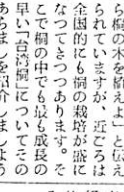 ら桐の木を植えよ」と伝え
られていますが、近ごろは
全国的にも桐の栽培が盛に
なつてきつつあります。そ
こで桐の中でも最も成長の
早い「台湾桐」についてその
あらましを紹介しましよう